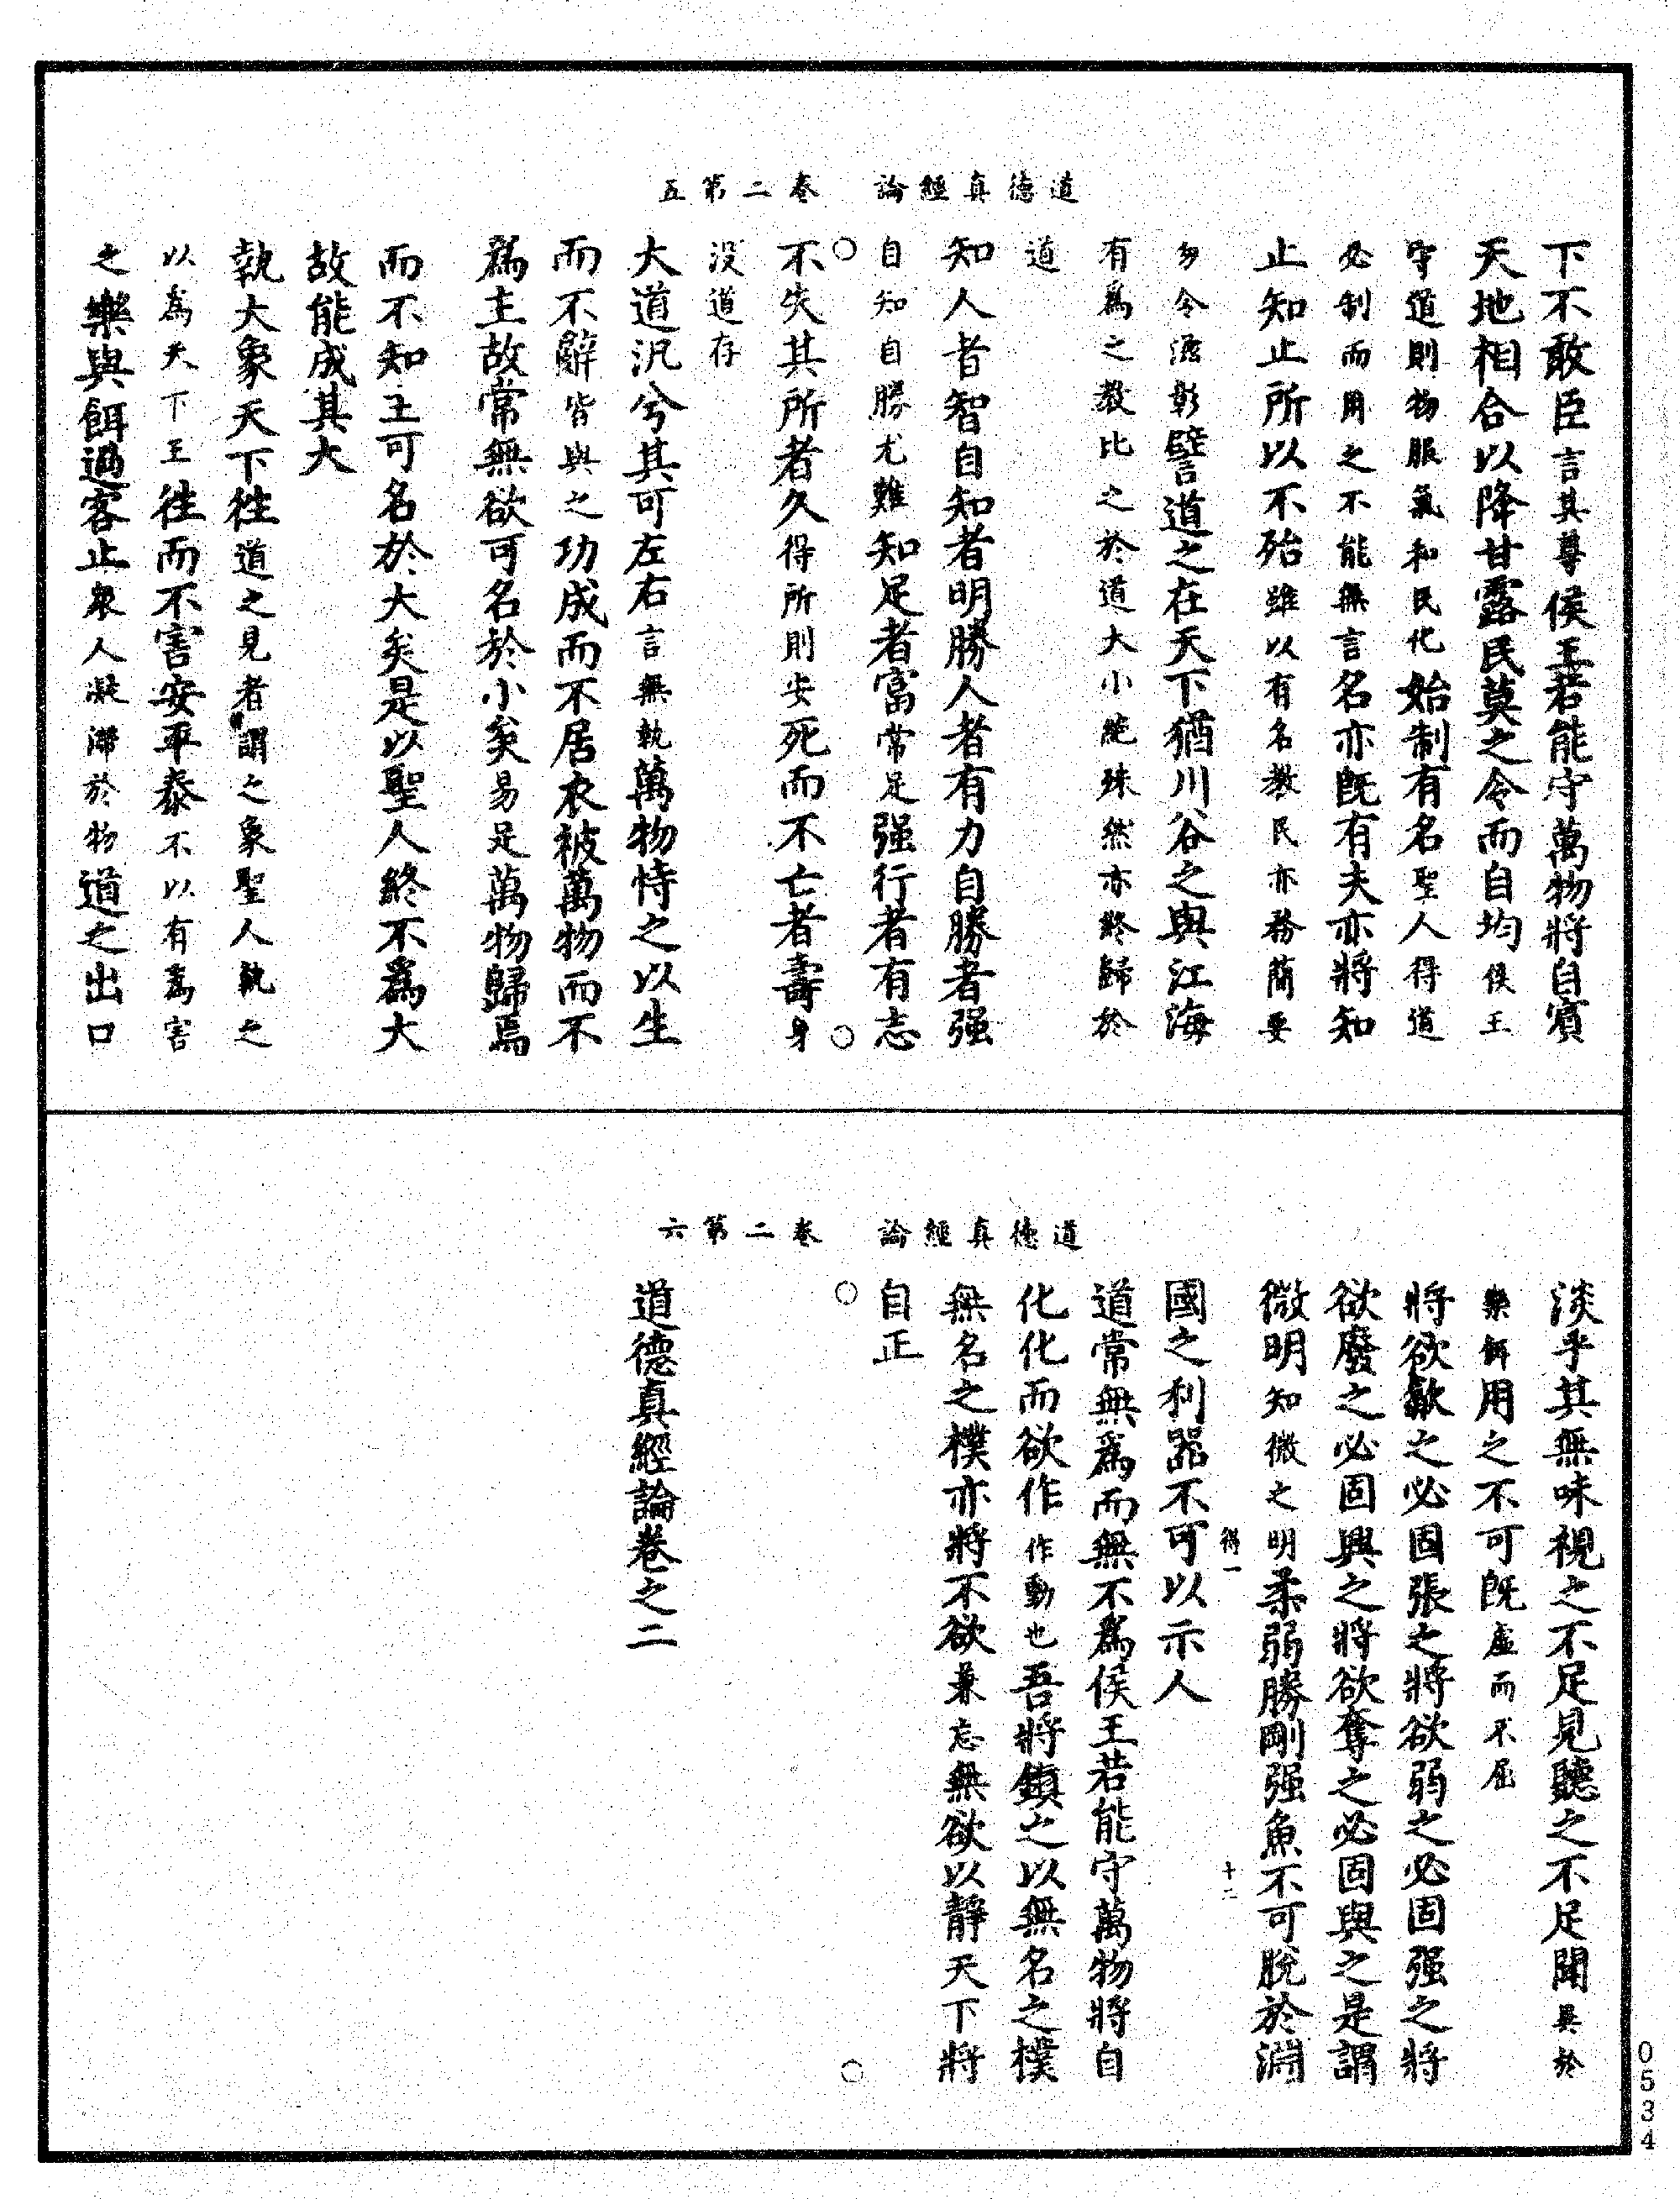 道德真經論　卷二第五
下不敢臣言其尊侯王若能守萬物將自賓
天地相合以降甘露民莫之令而自均侯王
守道則物服氣和民化始制有名聖人得道
必制而用之不能無言名亦既有夫亦將知
止知止所以不殆雖以有名教民亦務簡要
勿令滋彰譬道之在天下猶川谷之與江海
有爲之教比之於道大小絶殊然亦終歸於
道
知人者智自知者明勝人者有力自勝者强
自知自勝尤難知足者富常足强行者有志
○不失其所者久得所則安死而不亡者壽身○
没道存
大道汎兮其可左右言無執萬物恃之以生
而不辭皆與之功成而不居衣被萬物而不
爲主故常無欲可名於小矣易足萬物歸焉
而不知主可名於大矣是以聖人終不爲大
故能成其大
執大象天下往道之見者謂之象聖人執之
以爲天下王往而不害安平泰不以有爲害
之樂與餌過客止衆人凝滯於物道之出口
道德真經論　卷二第六
淡乎其無味視之不足見聽之不足聞異於
樂餌用之不可既虛而不屈
將欲歙之必固張之將欲弱之必固强之將
欲廢之必固興之將欲奪之必固與之是謂
微明知微之明柔弱勝剛强魚不可脫於淵
得一　十二
國之利器不可以示人
道常無爲而無不爲侯王若能守萬物將自
化化而欲作作動也吾將鎮之以無名之樸
無名之樸亦將不欲兼忘無欲以靜天下將
自正
○　○
道德真經論卷之二
0534